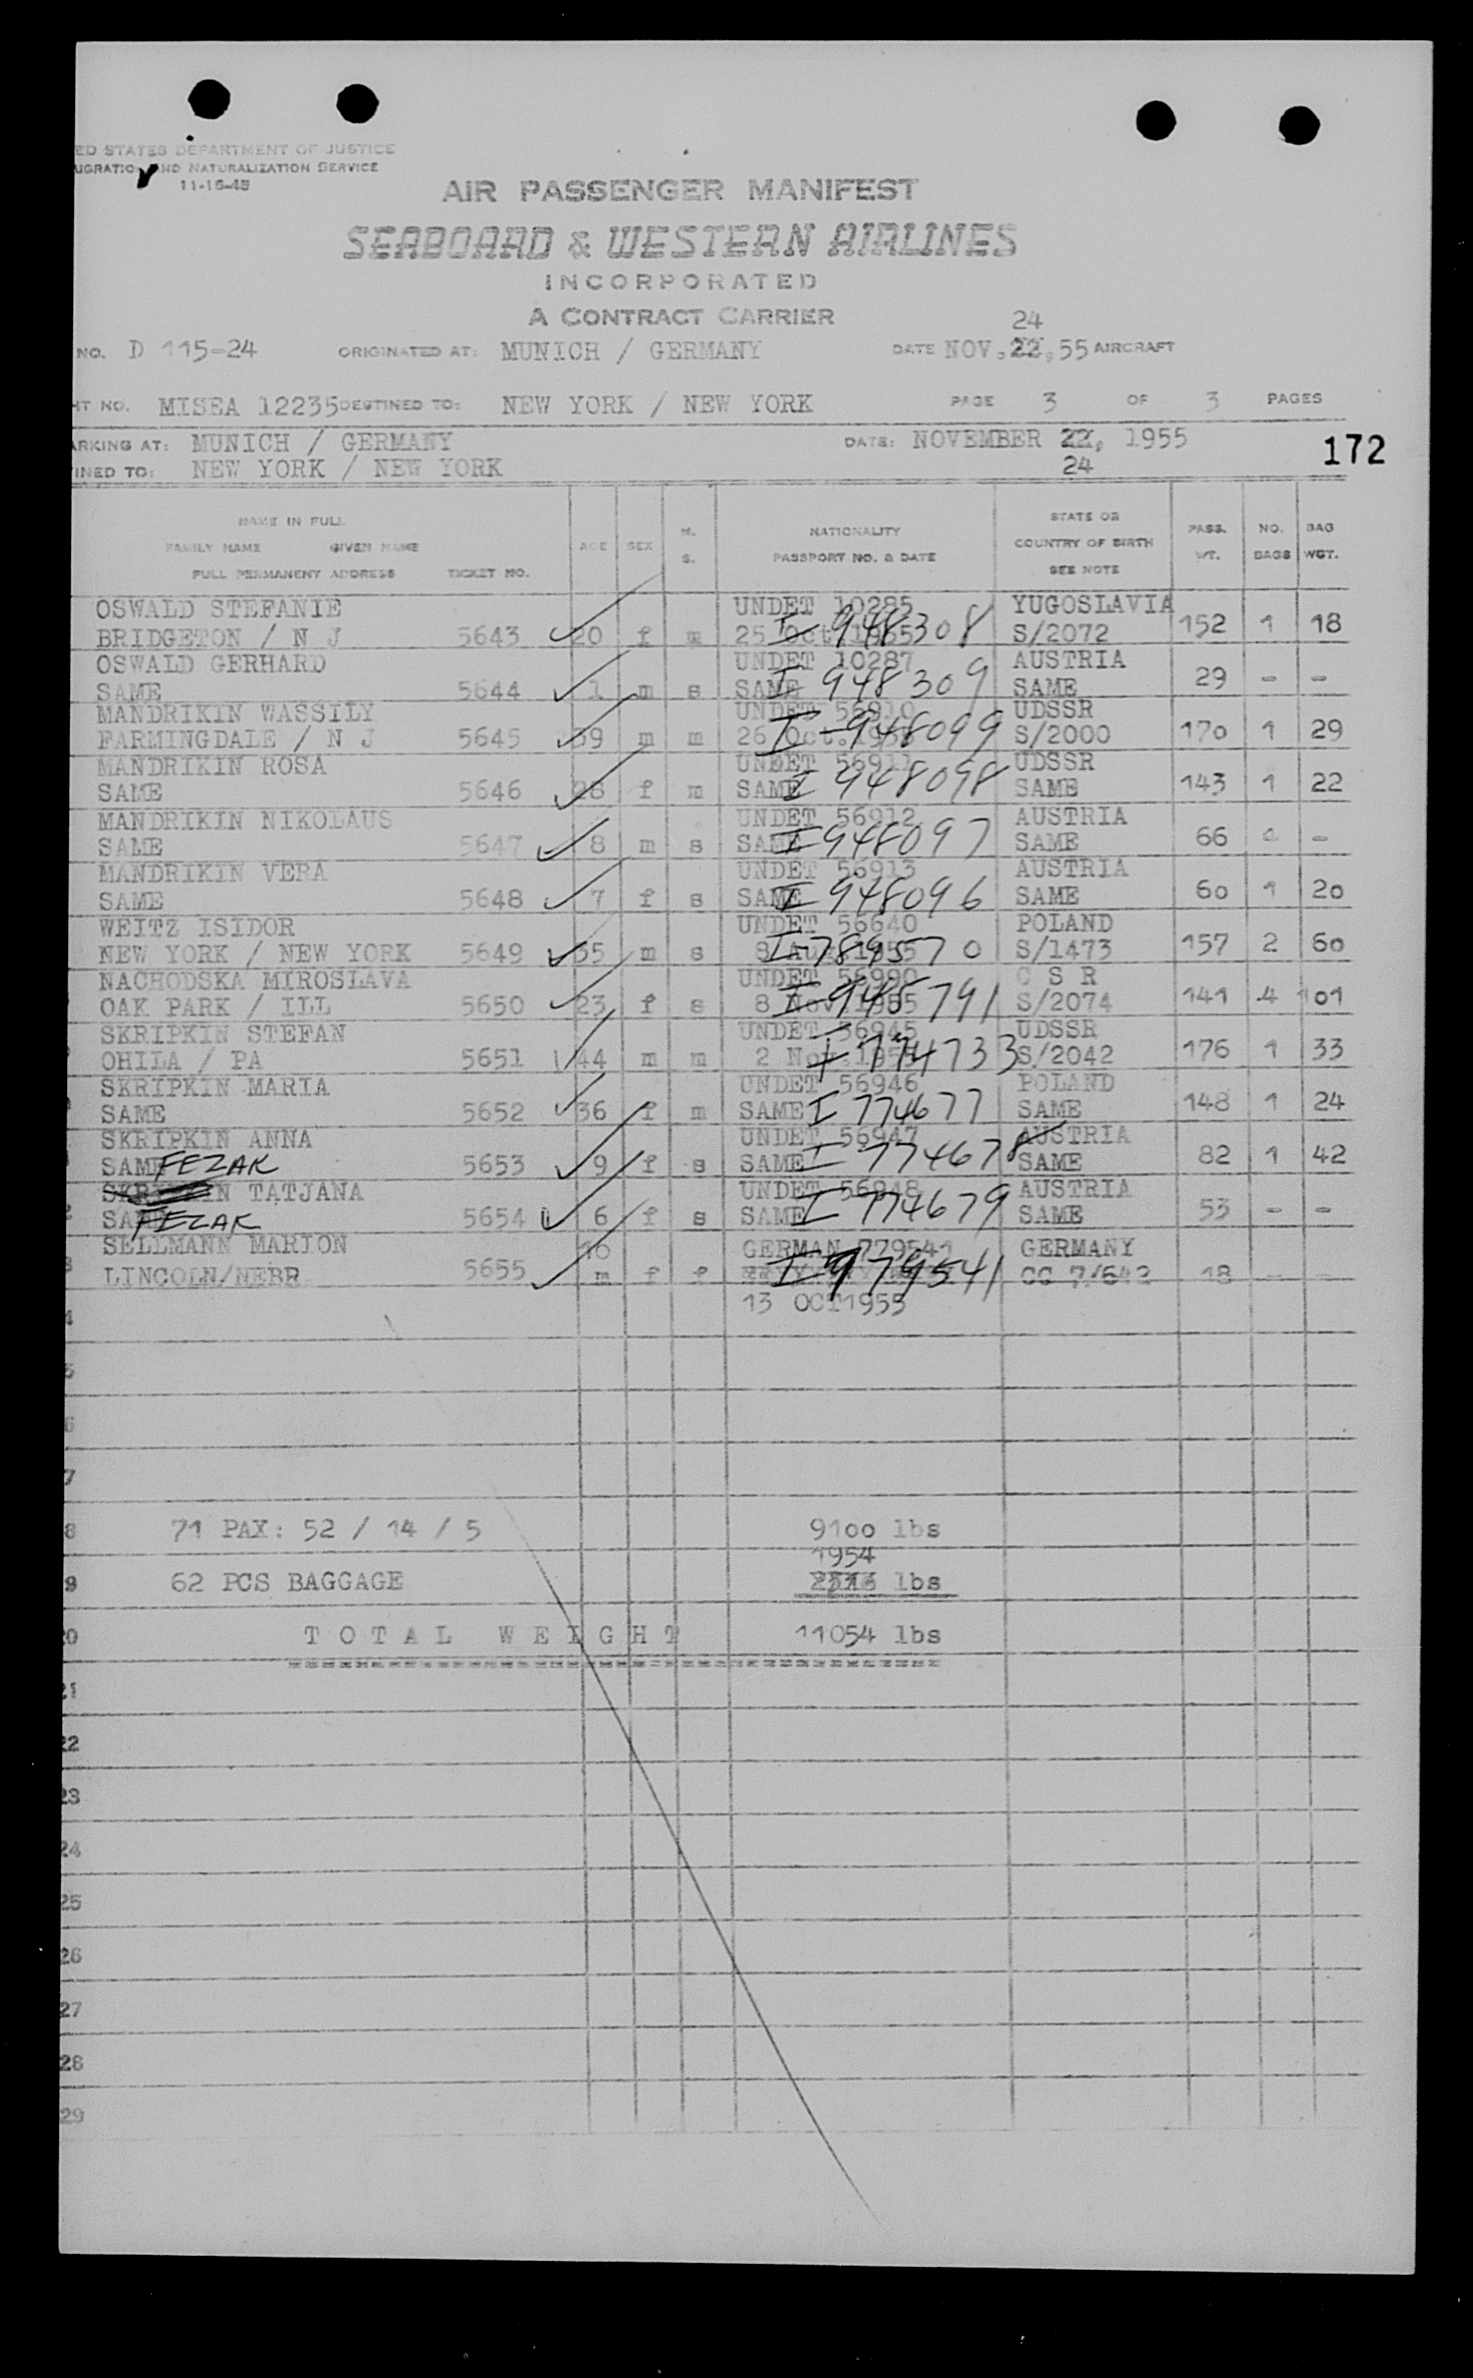 ED STATES DEPARTMENT OF JUSTICE
IGRATION AND NATURALIZATION SERVICE
11-16-48
AIR PASSENGER MANIFEST
SEABOARD & WESTERN AIRLINES
INCORPORATED
A CONTRACT CARRIER
24
NO. D 115-24 ORIGINATED AT: MUNICH / GERMANY DATE NOV.22,55 AIRCRAFT
HT NO. MISEA 12235 DESTINED TO: NEW YORK / NEW YORK PAGE 3 OF 3 PAGES
ARKING AT: MUNICH / GERMANY DATE: NOVEMBER 22, 1955
INED TO: NEW YORK / NEW YORK 24 172
NAME IN FULL
FAMILY NAME GIVEN NAME
FULL PERMANENT ADDRESS TICKET NO. AGE SEX M. S. NATIONALITY PASSPORT NO. & DATE STATE OR COUNTRY OF BIRTH SEE NOTE PASS. WT. NO. BAGS BAG WGT.
OSWALD STEFANIE UNDET 10285 YUGOSLAVIA
BRIDGETON / N J 5643 20 f m 25 Oct.1955 I-948308 S/2072 152 1 18
OSWALD GERHARD UNDET 10287 AUSTRIA
SAME 5644 1 m s SAME I 948309 SAME 29 - -
MANDRIKIN WASSILY UNDET 56910 UDSSR
FARMINGDALE / N J 5645 39 m m 26 Oct.1955 I-948099 S/2000 170 1 29
MANDRIKIN ROSA UNDET 56911 UDSSR
SAME 5646 28 f m SAME I 948098 SAME 143 1 22
MANDRIKIN NIKOLAUS UNDET 56912 AUSTRIA
SAME 5647 8 m s SAME I-948097 SAME 66 - -
MANDRIKIN VERA UNDET 56913 AUSTRIA
SAME 5648 7 f s SAME I-948096 SAME 60 1 20
WEITZ ISIDOR UNDET 56640 POLAND
NEW YORK / NEW YORK 5649 55 m s 8 1955 I-7895570 S/1473 157 2 60
NACHODSKA MIROSLAVA UNDET 56990 C S R
OAK PARK / ILL 5650 23 f s 8 Nov.1955 I-945791 S/2074 141 4 101
SKRIPKIN STEFAN UNDET 56945 UDSSR
OHILA / PA 5651 44 m m 2 Nov.1955 I 774733 S/2042 176 1 33
SKRIPKIN MARIA UNDET 56946 POLAND
SAME 5652 36 f m SAME I 774677 SAME 148 1 24
SKRIPKIN ANNA UNDET 56947 AUSTRIA
SAME FEZAK 5653 9 f s SAME I 774678 SAME 82 1 42
SKRIPKIN TATJANA UNDET 56948 AUSTRIA
SAME FEZAK 5654 6 f s SAME I 774679 SAME 53 - -
SELLMANN MARION 16 GERMAN 779541 GERMANY
LINCOLN/NEBR 5655 m f f I-979541 CC 7/642 18 - -
13 OCT1955
4
5
6
7
8 71 PAX: 52 / 14 / 5 9100 lbs
1954
9 62 PCS BAGGAGE lbs
20 T O T A L W E I G H T 11054 lbs
=======================================
21
22
23
24
25
26
27
28
29